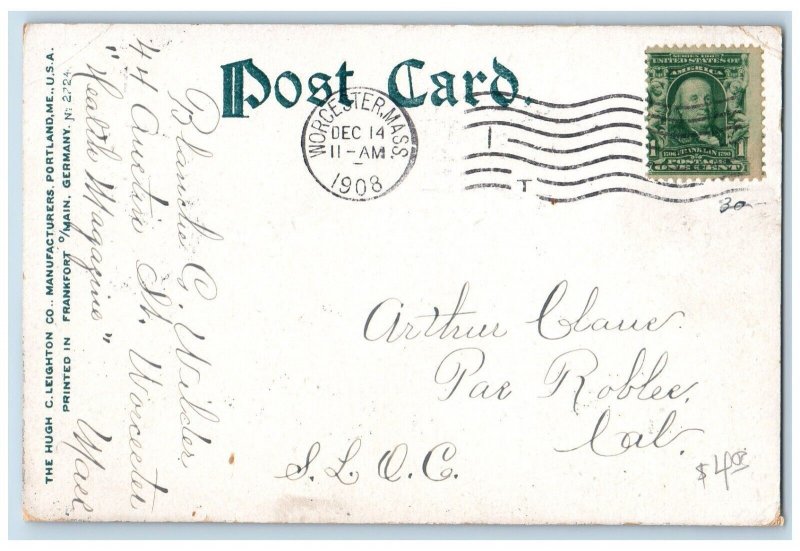 Post Card.
WORCESTER, MASS.
DEC 14
11-AM
1908
I
T
SERIES 1902
UNITED STATES OF
AMERICA
1706 FRANKLIN 1790
1 POSTAGE 1
ONE CENT
30-
Arthur Claue.
Par Robles.
Cal.
S. L. O. C.
$4.00
Blanche G. Wilder
44 Austin St. Worcester
"Health Magazine" Mass
THE HUGH C. LEIGHTON CO., MANUFACTURERS, PORTLAND, ME., U.S.A.
PRINTED IN FRANKFORT O/MAIN, GERMANY. No 2724